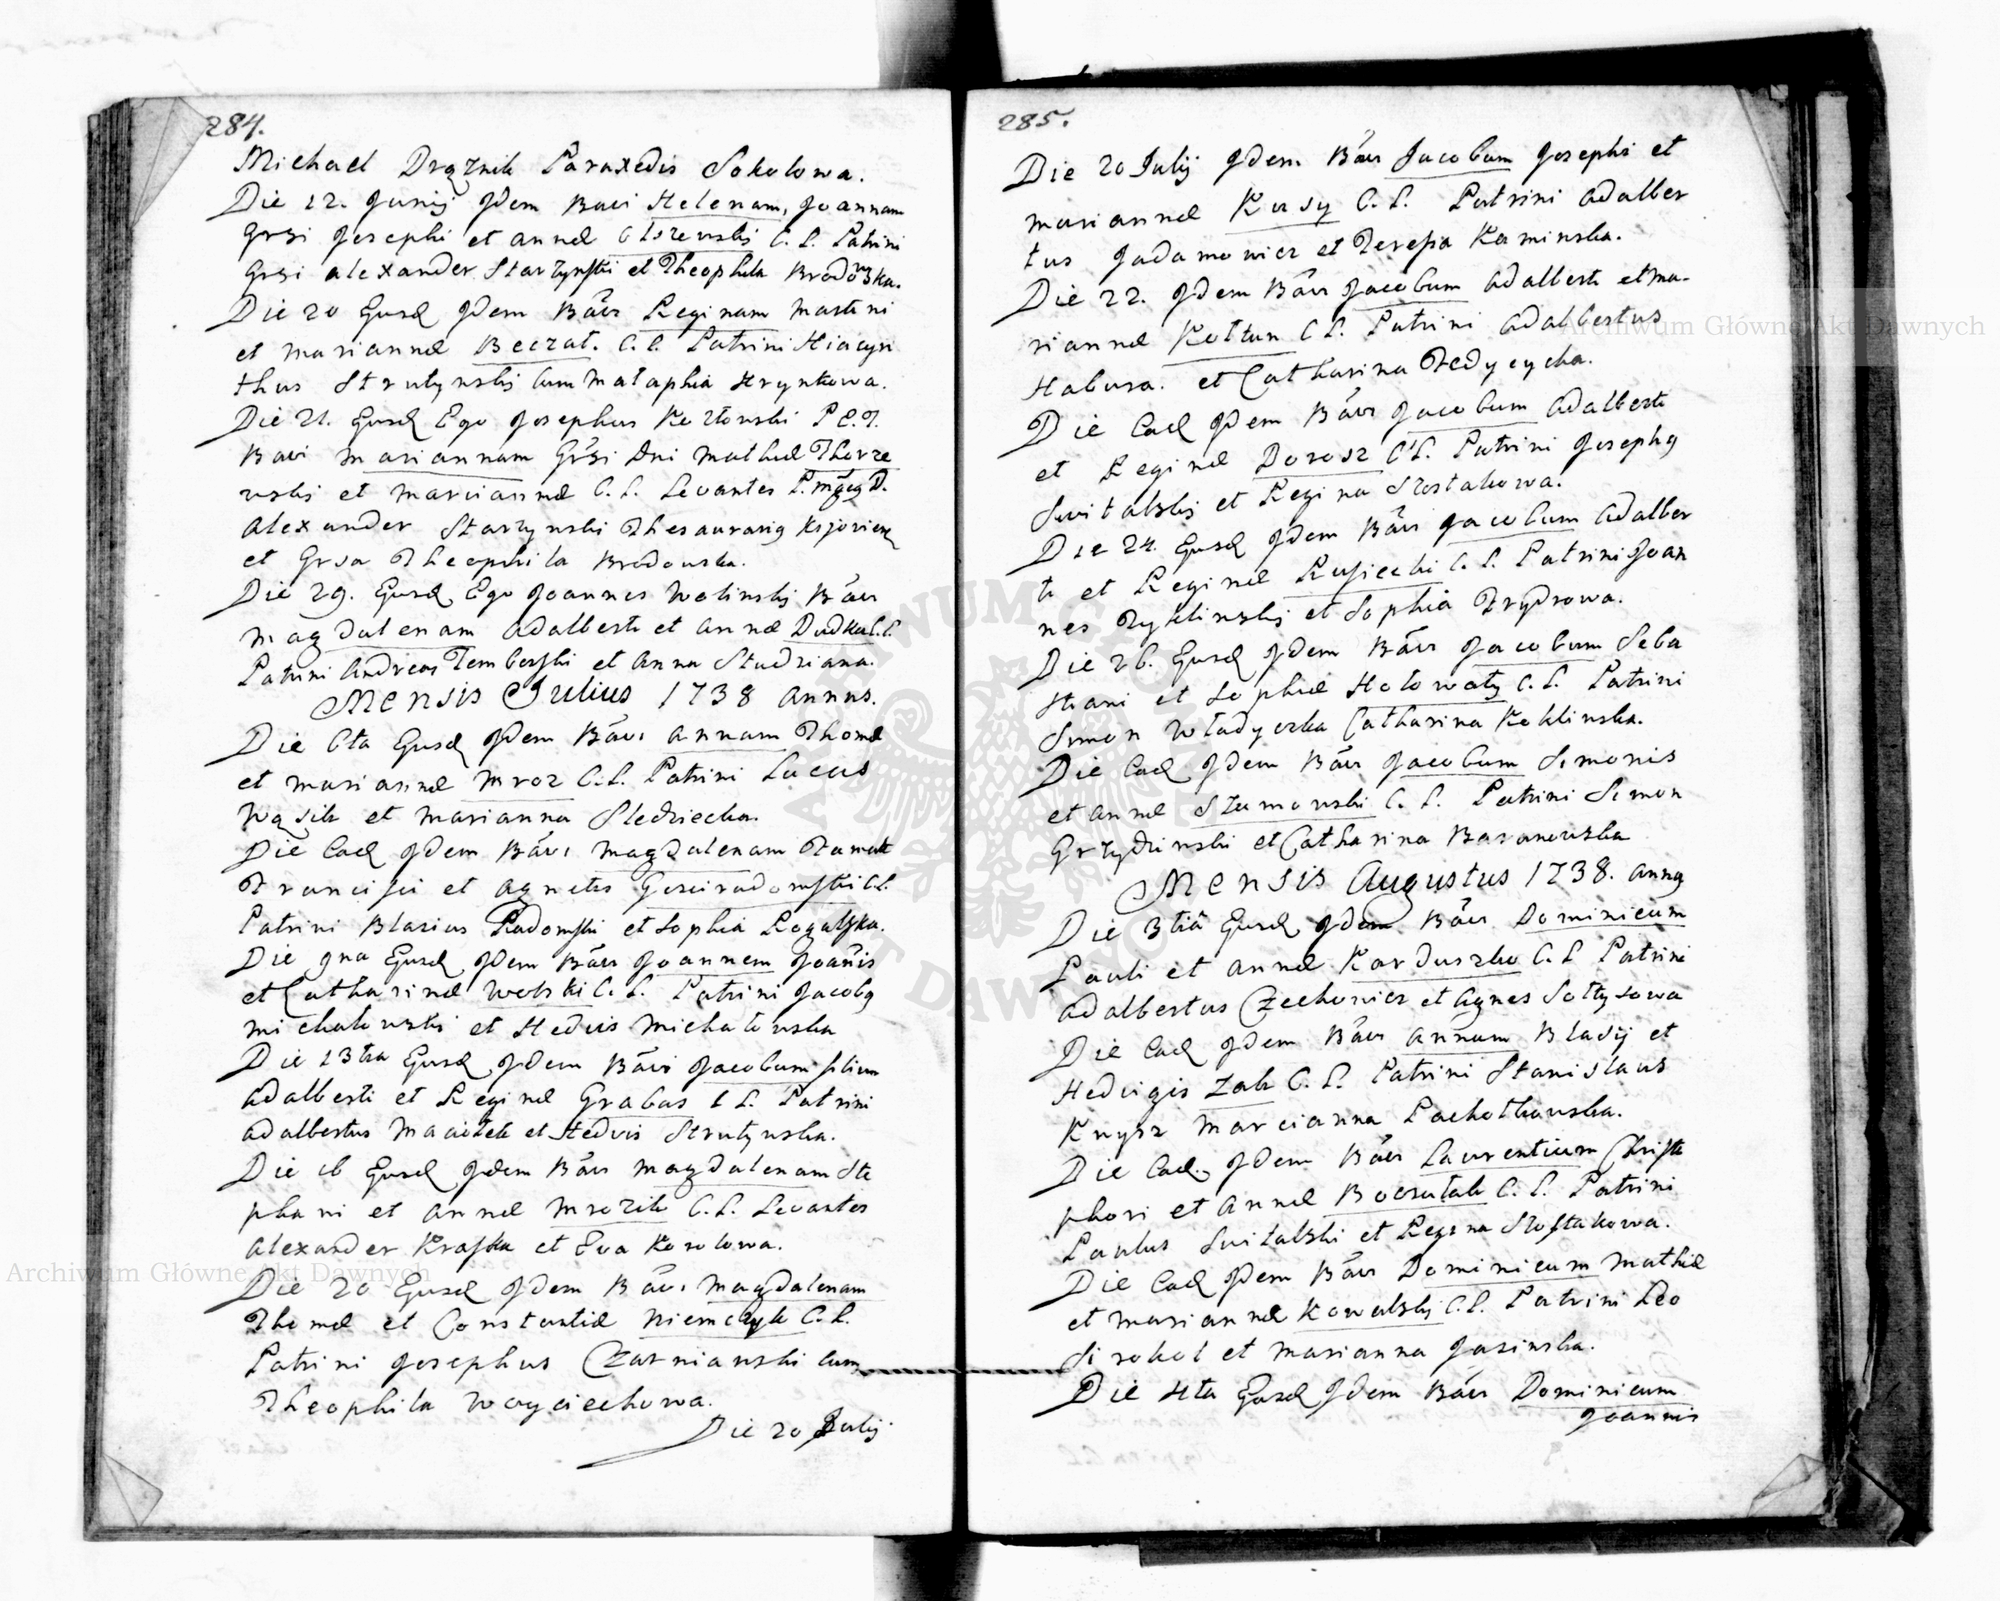 284.
Michael Drąznik Paraxedis Sokolowa.
Die 12. Junij Jdem Bavi Helenam, Joannam
Grsi Josephi et Annæ Olszewskij C. L. Patrini
Grsi Alexander Starzynski et Theophila Brodowska.
Die 20 Eusd Jdem Bavi Reginam Martini
et Mariannæ Beczat. C. L. Patrini Hiacyn
thus Strutynskij cum Mataphia Hrynkowa.
Die 21. Eusd Ego Josephus Kozłowski P C. J.
Bavi Mariannam Grsi Dni Mathæ Thorze
wskij et Marciannæ C. L. Levantes P. Mgcg D.
Alexander Starzynski Thesaurarig
et Grsa Theophila Brodowska.
Die 29. Eusd Ego Joannes Wolinskij Bavi
Magdalenam Adalberti et Annæ Dudka C. L.
Patrini Andreas Temberski et Anna Studziana.
Mensis Julius 1738 Annus.
Die 6ta Eusd Jdem Bavi Annam Thomæ
et Mariannæ Mroz C. L. Patrini Lucas
Wąsik et Marianna Sledziecka.
Die Ead Jdem Bavi Magdalenam
Francisci et Agnetis Gosciradowski C. L.
Patrini Blasius Radomski et Sophia Rogalska.
Die 9na Eusd Jdem Bavi Joannem Joanis
et Catharinæ Wolski C. L. Patrini Jacobg
Michałowski et Hedvis Michałowska
Die 13tia Eusd Jdem Bavi Jacobum filium
Adalberti et Reginæ Grabas C L. Patrini
Adalbertus Maciołek et Hedvis Strutynska.
Die 16 Eusd Jdem Bavi Magdalenam Ste
phani et Annæ Mrozik C. L. Levantes
Alexander Kraska et Eva Korolowa.
Die 20 Eusd Jdem Bavi Magdalenam
Thomæ et Constantiæ Niemczyk C. L.
Patrini Josephus Czarnianski cum
Theophila Woyciechowa.
Die 20 Julij
285.
Die 20 Julij Jdem Bavi Jacobum Josephi et
Mariannæ Kusy C. L. Patrini Adalber
tus Jadamowicz et Teresia Kaminska.
Die 22. Jdem Bavi Jacobum Adalberti et Ma-
riannæ Kołtun C L. Patrini Adalbertus
Habura. et Catharina Fedycycha.
Die Ead Jdem Bavi Jacobum Adalberti
et Reginæ Dorosz C L. Patrini Josephg
Switalskij et Regina Szostakowa.
Die 24. Eusd Jdem Bavi Jacobum Adalber
ti et Reginæ Rusiecki C. L. Patrini Joan
nes Ryklinskij et Sophia Frydrowa.
Die 26. Eusd Jdem Bavi Jacobum Seba
stiani et Sophiæ Hołowaty C. L. Patrini
Simon Władyczka Catharina Koklinska.
Die Ead Jdem Bavi Jacobum Simonis
et Annæ Szumowski C. L. Patrini Simon
Grzydzinski et Catharina Baranowska
Mensis Augustus 1738. Anng
Die 3tiâ Eusd Jdem Bavi Dominicum
Pauli et Annæ Karduszko C. L Patrini
Adalbertus Czechowicz et Agnes Sołtysowa
Die Ead Jdem Bavi Annam Blasij et
Hedvigis Zak C. L. Patrini Stanislaus
Knysz Marcianna Pachotkowska.
Die Ead. Jdem Bavi Laurentium Christo
phori et Annæ C. L. Patrini
Paulus Switalski et Regina Szostakowa.
Die Ead Jdem Bavi Dominicum Mathiæ
et Mariannæ Kowalskij C. L. Patrini Leo
Sirokol et Marianna Jasinska.
Die 4ta Eusd Jdem Bavi Dominicum
Joannis
Archiwum Główne Akt Dawnych
Archiwum Główne Akt Dawnych
ARCHIWUM GŁÓWNE AKT DAWNYCH